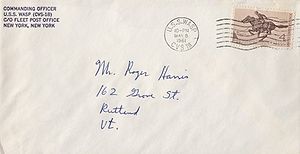 COMMANDING OFFICER
U.S.S. WASP (CVS-18)
C/O FLEET POST OFFICE
NEW YORK, NEW YORK
U.S.S. WASP
10-PM
MAY 8
1961
CVS 18
Mr. Roger Harris
162 Grove St.
Rutland
Vt.